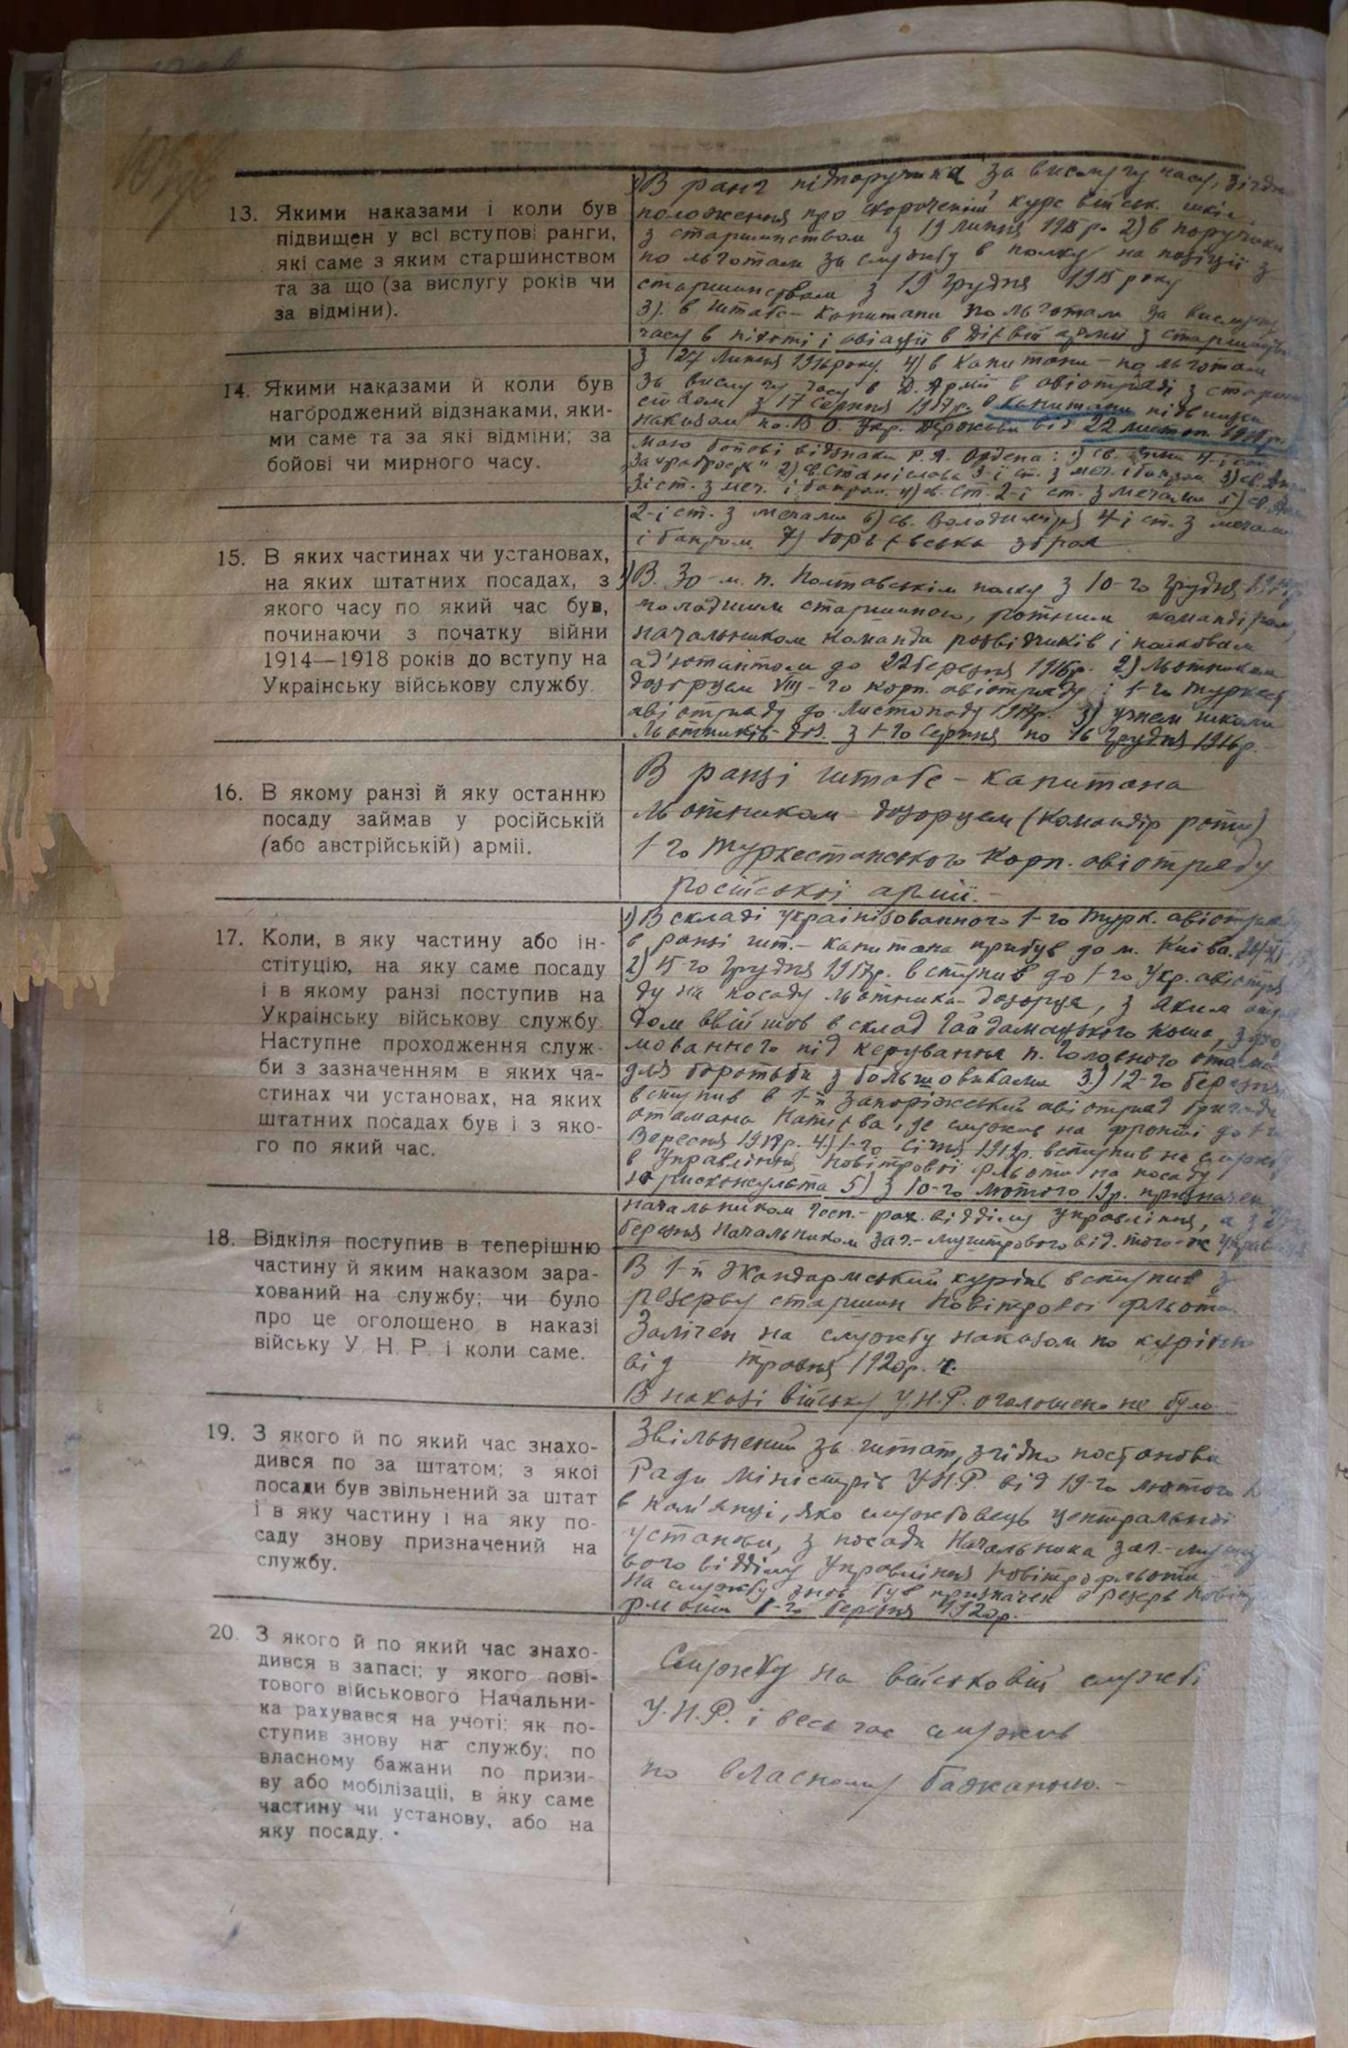 13. Якими наказами і коли був
підвищен у всі вступові ранги,
які саме з яким старшинством
та за що (за вислугу років чи
за відміни).
1) В ранг підпоручика за вислугу часу, згідно
положення про скорочений курс військ. шкіл
з старшинством з 19 липня 1915 р. 2) в поручики
по льготам за службу в полку на позіції з
старшинством з 19 грудня 1915 року
3) в Штабс-капитани по льготам за вислугу
часу в піхоті і авіації в Дієвій армії з старшинств
з 27 Липня 1916 року 4) в Капитани - по льготам
за вислугу часу в Д. Армії в авіотряді з старшин
ством з 17 Серпня 1917 р. В капитани підвищен
наказом по В.О. Укр. Держави від 22 листоп. 1918 р.
14. Якими наказами й коли був
нагороджений відзнаками, яки-
ми саме та за які відміни; за
бойові чи мирного часу.
Маю бойові відзнаки Р.А. Ордена: 1) св. Анни 4-ї ст.
За храбрость" 2) св. Станіслава 3-ї ст. з меч. і бантом 3) св. Анни
3 ст. з меч. і бантом 4) св. Ст. 2-ї ст. з мечами 5) св. Анни
2-ї ст. з мечами 6) св. Володиміра 4-ї ст. з мечами
і бантом 7) зброя
15. В яких частинах чи установах,
на яких штатних посадах, з
якого часу по який час був,
починаючи з початку війни
1914—1918 років до вступу на
Українську військову службу.
1) В 30-м п. Полтавськім полку з 10-го грудня
молодшим старшиною, ротним командіром,
начальником команди розвідчиків і полковим
ад'ютантом до 22 березня 1916 р. 2) льотником
дозорцем VIII-го корп. авіотряду і 1-го Туркест
авіотряду до Листопаду 1917 р. 3) учнем школи
Льотників-доз. з 1-го Серпня по 16 Грудня 1916 р.
16. В якому ранзі й яку останню
посаду займав у російській
(або австрійській) армії.
В ранзі штабс-капитана
льотником дозорцем (командір роти)
1-го Туркестанського Корп. авіотряду
російської армії.-
17. Коли, в яку частину або ін-
стітуцію, на яку саме посаду
і в якому ранзі поступив на
Українську військову службу.
Наступне проходження служ-
би з зазначенням в яких ча-
стинах чи установах, на яких
штатних посадах був і з яко-
го по який час.
1) В складі українізованного 1-го Турк. авіотряду
в ранзі шт.-капитана прибув до м. Київа
2) 15-го Грудня 1917 р. вступив до 1-го Укр. авіотря
ду на посаду льотника-дозорця, з яким отря
дом ввійшов в склад Гайдамацького Коша, сфор
мованного під керування п. Головного отамана
для боротьби з большовиками 3) 12-го березня
вступив в 1-й Запоріжський авіотряд бригади
отамана Натієва, де служив на фронті до 1-го
Вересня 1918 р. 4) 1-го Січня 1919 р. вступив на службу
в Управління Повітрової Фльоти на посаду
юрисконсульта 5) з 10-го лютого 19 р. призначен
начальником госп.-рах. відділу Управління, а з
березня Начальником заг.- від. того-ж Управління
18. Відкіля поступив в теперішню
частину й яким наказом зара-
хований на службу; чи було
про це оголошено в наказі
війську У. Н. Р. і коли саме.
В 1-й жандармський курінь вступив з
резерву старшин Повітрової Фльоти
Залічен на службу наказом по куріню
від травня 1920 р. ч.
В наказі війську У.Н.Р. оголошено не було
19. З якого й по який час знахо-
дився по за штатом; з якої
посади був звільнений за штат
і в яку частину і на яку по-
саду знову призначений на
службу.
Звільнений за штат, згідно постанови
Ради Міністрів У.Н.Р. від 19-го лютого
в Кам'янці, яко службовець центральної
установи, з посади Начальника заг.-
вого відділу Управління Повітр. фльоти
На службу знов був призначен в резерв Повітр
фльоти 1-го березня 1920 р.
20. З якого й по який час знахо-
дився в запасі; у якого пові-
тового військового Начальни-
ка рахувався на учоті; як по-
ступив знову на службу; по
власному бажани по призи-
ву або мобілізації, в яку саме
частину чи установу, або на
яку посаду.
Служу на військовій службі
У.Н.Р. і весь час служив
по власному бажанню.-